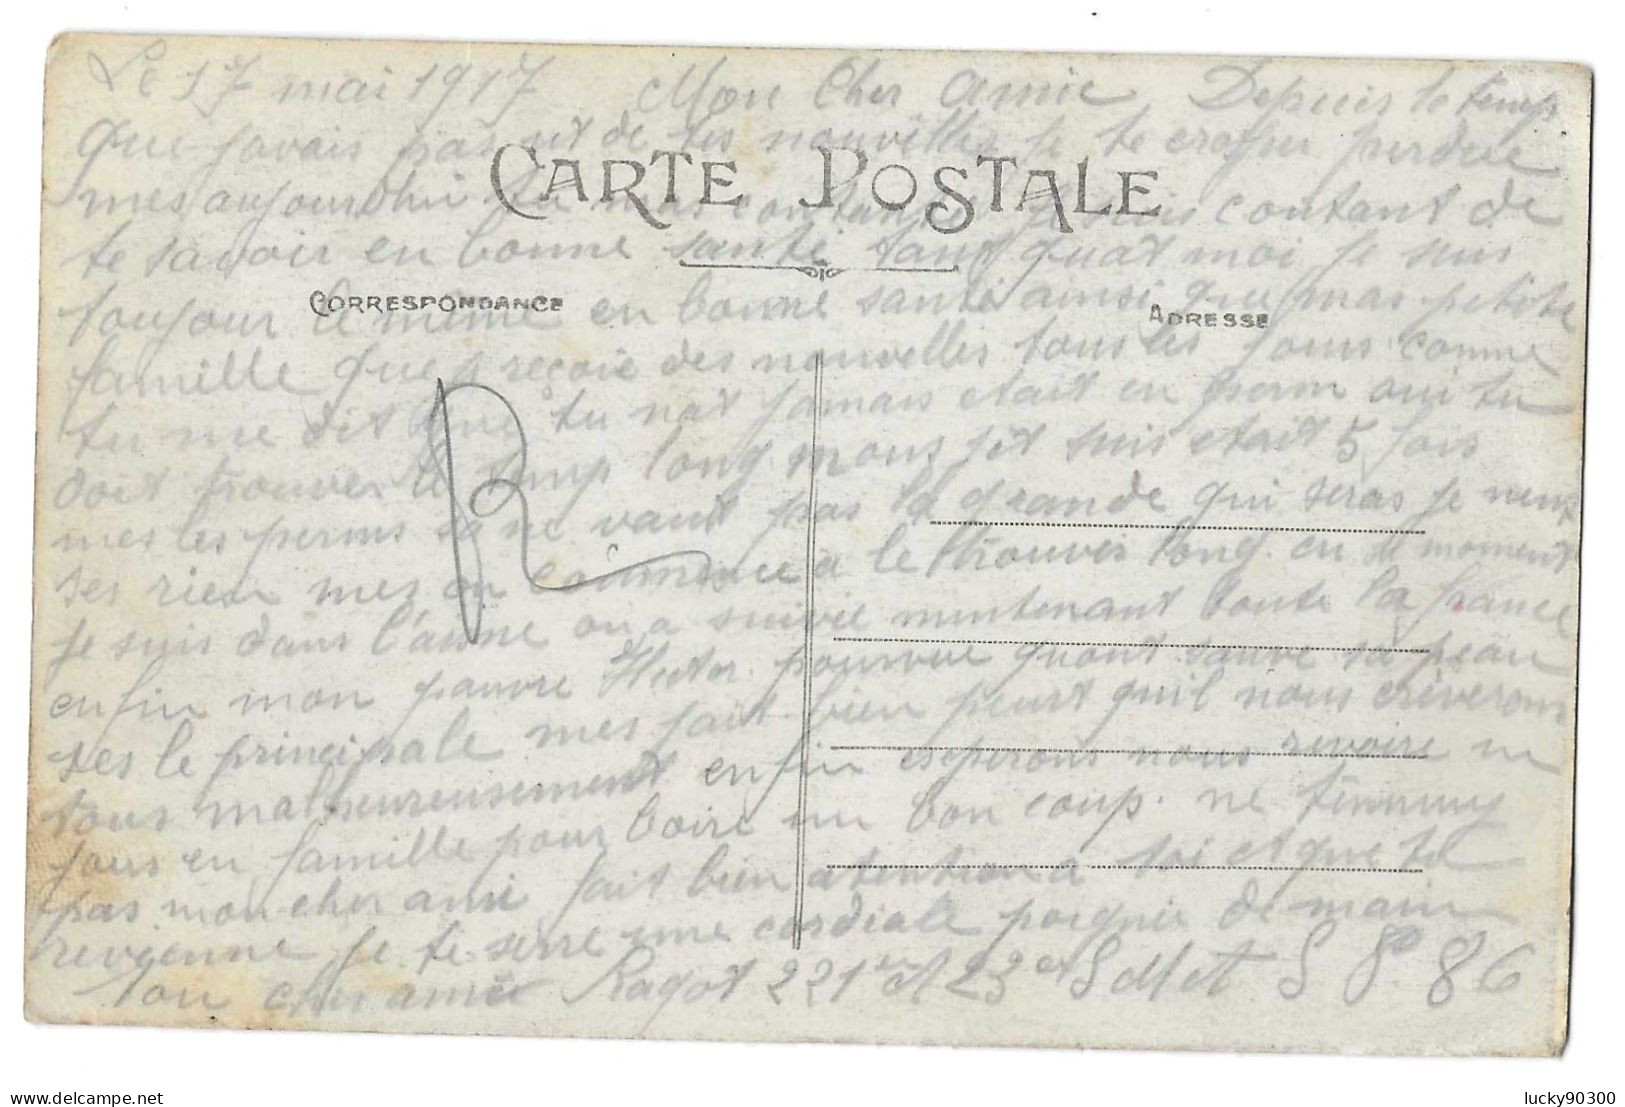 Le 17 mai 1917 Mon Cher Amie Depuis le temps
que javais pas ut de tes nouvelles je te croyer perdue
CARTE POSTALE
mes aujourdhui tu mas contant de
te savoir en bonne santé tant quat moi je suis
CORRESPONDANCE
ADRESSE
toujour le meme en bonne santé ainsi que mas petite
famille que reçoie des nouvelles tous les jours comme
tu me dit que tu nat jamais etait en perm oui tu
doit trouver le temp long mous jit suis etait 5 fois
mes les perms sa ne vaut pas la grande qui seras je
ses rien mes on commence a le trouver long en se moment
je suis dans l'aisne on a suivie mintenant toute la france
enfin mon pauvre Hector pourvue quont sauve sa peau
ses le principale mes jait bien peurt quil nous crèverons
tous malheureusement enfin esperons nous revoire un
jour en famille pour boire un bon coup ne
pas mon cher ami fait bien atention a toi et que tu
revienne je te serre une cordiale poignée de main
ton cher amie Ragot 221e 23e S 86
R
delcampe.net
lucky90300